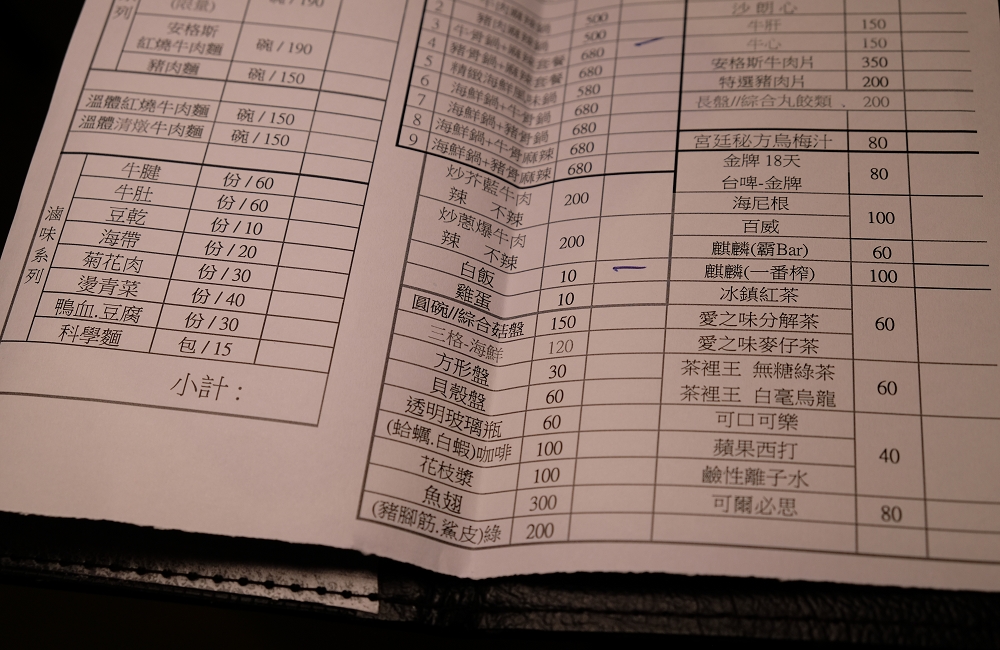 列
(限量)
碗 / 190
安格斯
紅燒牛肉麵
碗 / 190
豬肉麵
碗 / 150
溫體紅燒牛肉麵
碗 / 150
溫體清燉牛肉麵
碗 / 150
滷味系列
牛腱
份 / 60
牛肚
份 / 60
豆乾
份 / 10
海帶
份 / 20
菊花肉
份 / 30
燙青菜
份 / 40
鴨血.豆腐
份 / 30
科學麵
包 / 15
小計：
2
牛肉麻辣鍋
3
豬肉麻辣鍋
500
4
牛骨鍋+麻辣套餐
500
5
豬骨鍋+麻辣套餐
680
6
精緻海鮮風味鍋
680
7
海鮮鍋+牛骨鍋
580
8
海鮮鍋+豬骨鍋
680
9
海鮮鍋+牛骨麻辣
680
海鮮鍋+豬骨麻辣
680
680
炒芥藍牛肉
辣 不辣
200
炒蔥爆牛肉
辣 不辣
200
白飯
10
雞蛋
10
圓碗//綜合菇盤
150
三格-海鮮
120
方形盤
30
貝殼盤
60
透明玻璃瓶
60
(蛤蠣.白蝦)咖啡
100
花枝漿
100
魚翅
300
(豬腳筋.鯊皮)綠
200
沙朗心
牛肝
150
牛心
150
安格斯牛肉片
350
特選豬肉片
200
長盤//綜合丸餃類、
200
宮廷秘方烏梅汁
80
金牌 18天
台啤-金牌
80
海尼根
百威
100
麒麟(霸Bar)
60
麒麟(一番榨)
100
冰鎮紅茶
愛之味分解茶
愛之味麥仔茶
60
茶裡王 無糖綠茶
茶裡王 白毫烏龍
60
可口可樂
蘋果西打
鹼性離子水
40
可爾必思
80